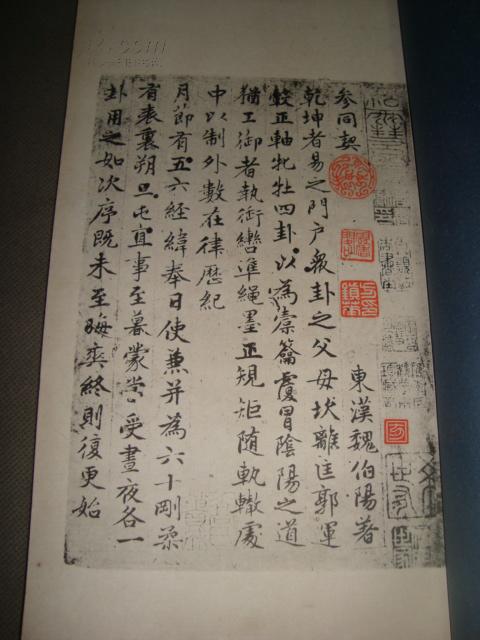 參同契
東漢魏伯陽著
乾坤者易之門户衆卦之父母坎離匡郭運
轂正軸牝牡四卦以為橐籥覆冒陰陽之道
猶工御者執銜轡準繩墨正規矩随軌轍處
中以制外數在律歷紀
月節有五六經緯奉日使兼并為六十剛柔
有表裏朔旦屯直事至暮蒙當受晝夜各一
卦用之如次序既未至晦爽終則復更始